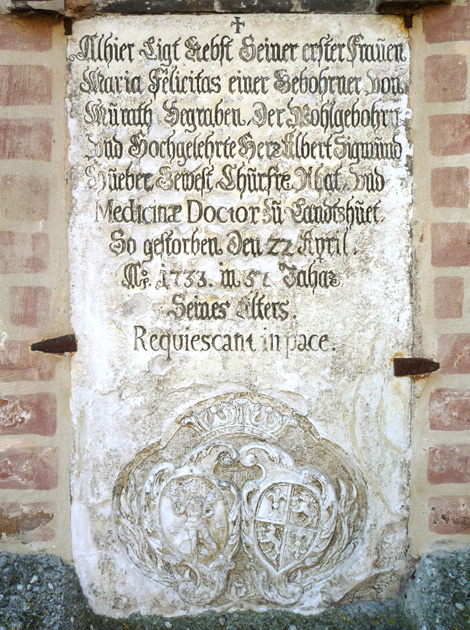 Alhier Ligt Nebst Seiner erster Frauen
Maria Felicitas einer Gebohrner von
Murath Begraben, Der Wohlgebohrn
Und Hochgelehrte Herr Albert Sigmund
Hueber Gewest Churfrste Rat. und
Medicinæ Doctor zu Landtshuet.
So gestorben Den 22 Apryl.
1733. in 51 Jahar
Seines Alters.
Requiescant in pace.